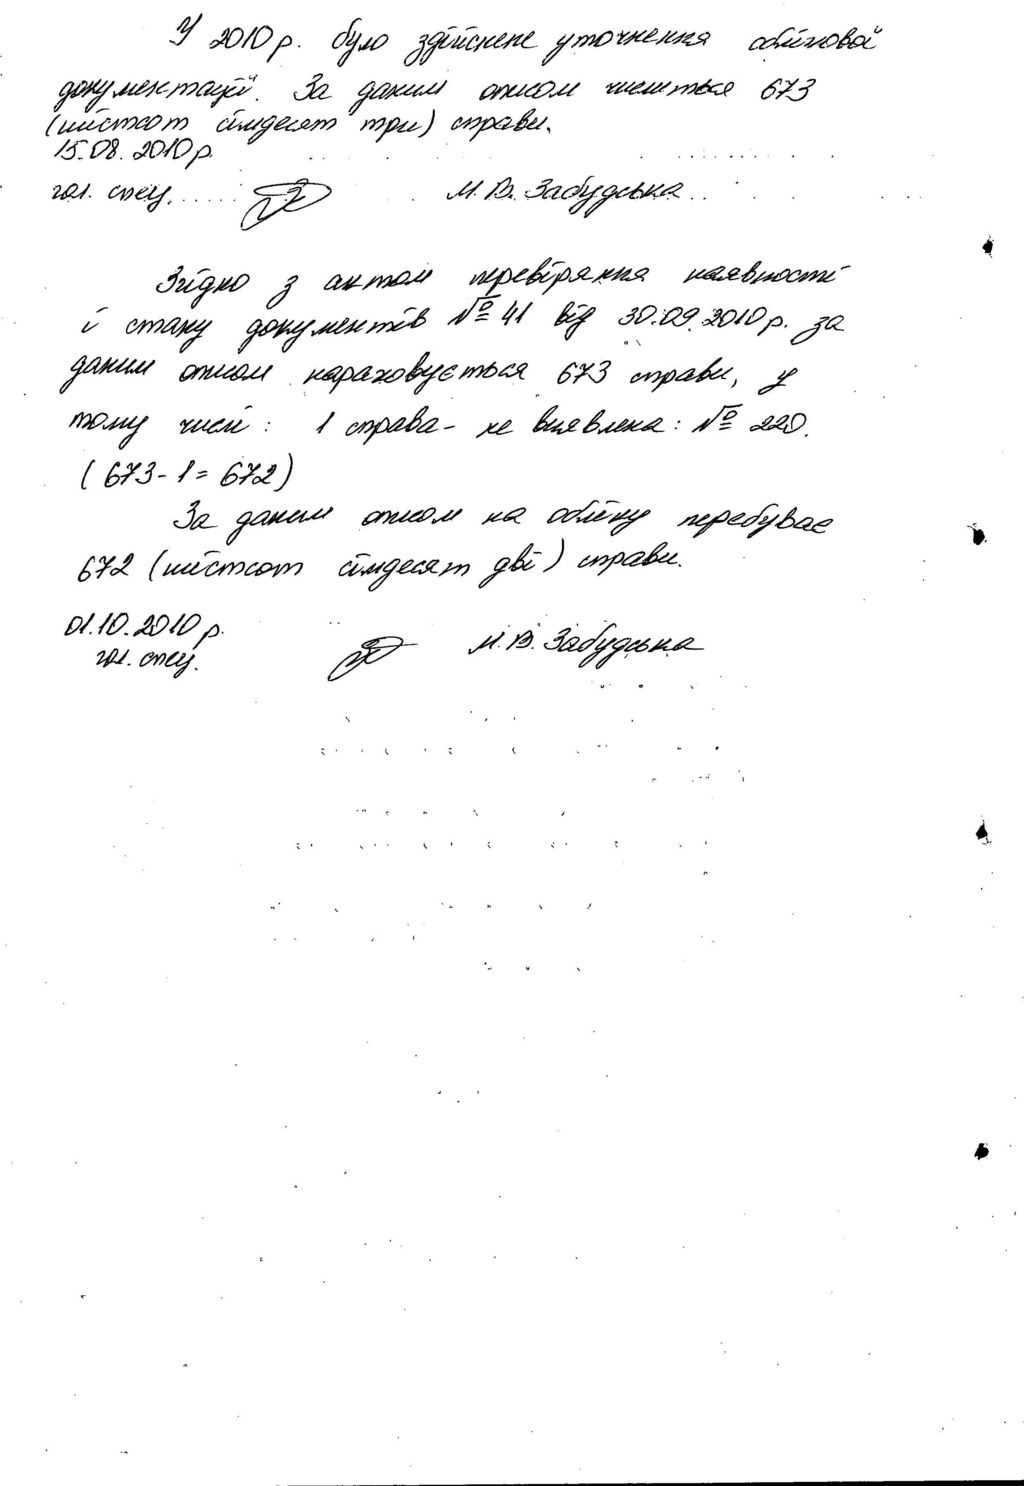 У 2010 р. було здійснене уточнення облікової
документації. За даним описом числиться 673
(шістсот сімдесят три) справи.
15.08.2010 р.
гол. спец. М.В. Забудська
Згідно з актом перевіряння наявності
і стану документів № 41 від 30.09.2010 р. за
даним описом нараховується 673 справи, у
тому числі: 1 справа - не виявлена: № 220.
(673-1=672)
За даним описом на обліку перебуває
672 (шістсот сімдесят дві) справи.
01.10.2010 р.
гол. спец. М.В. Забудська